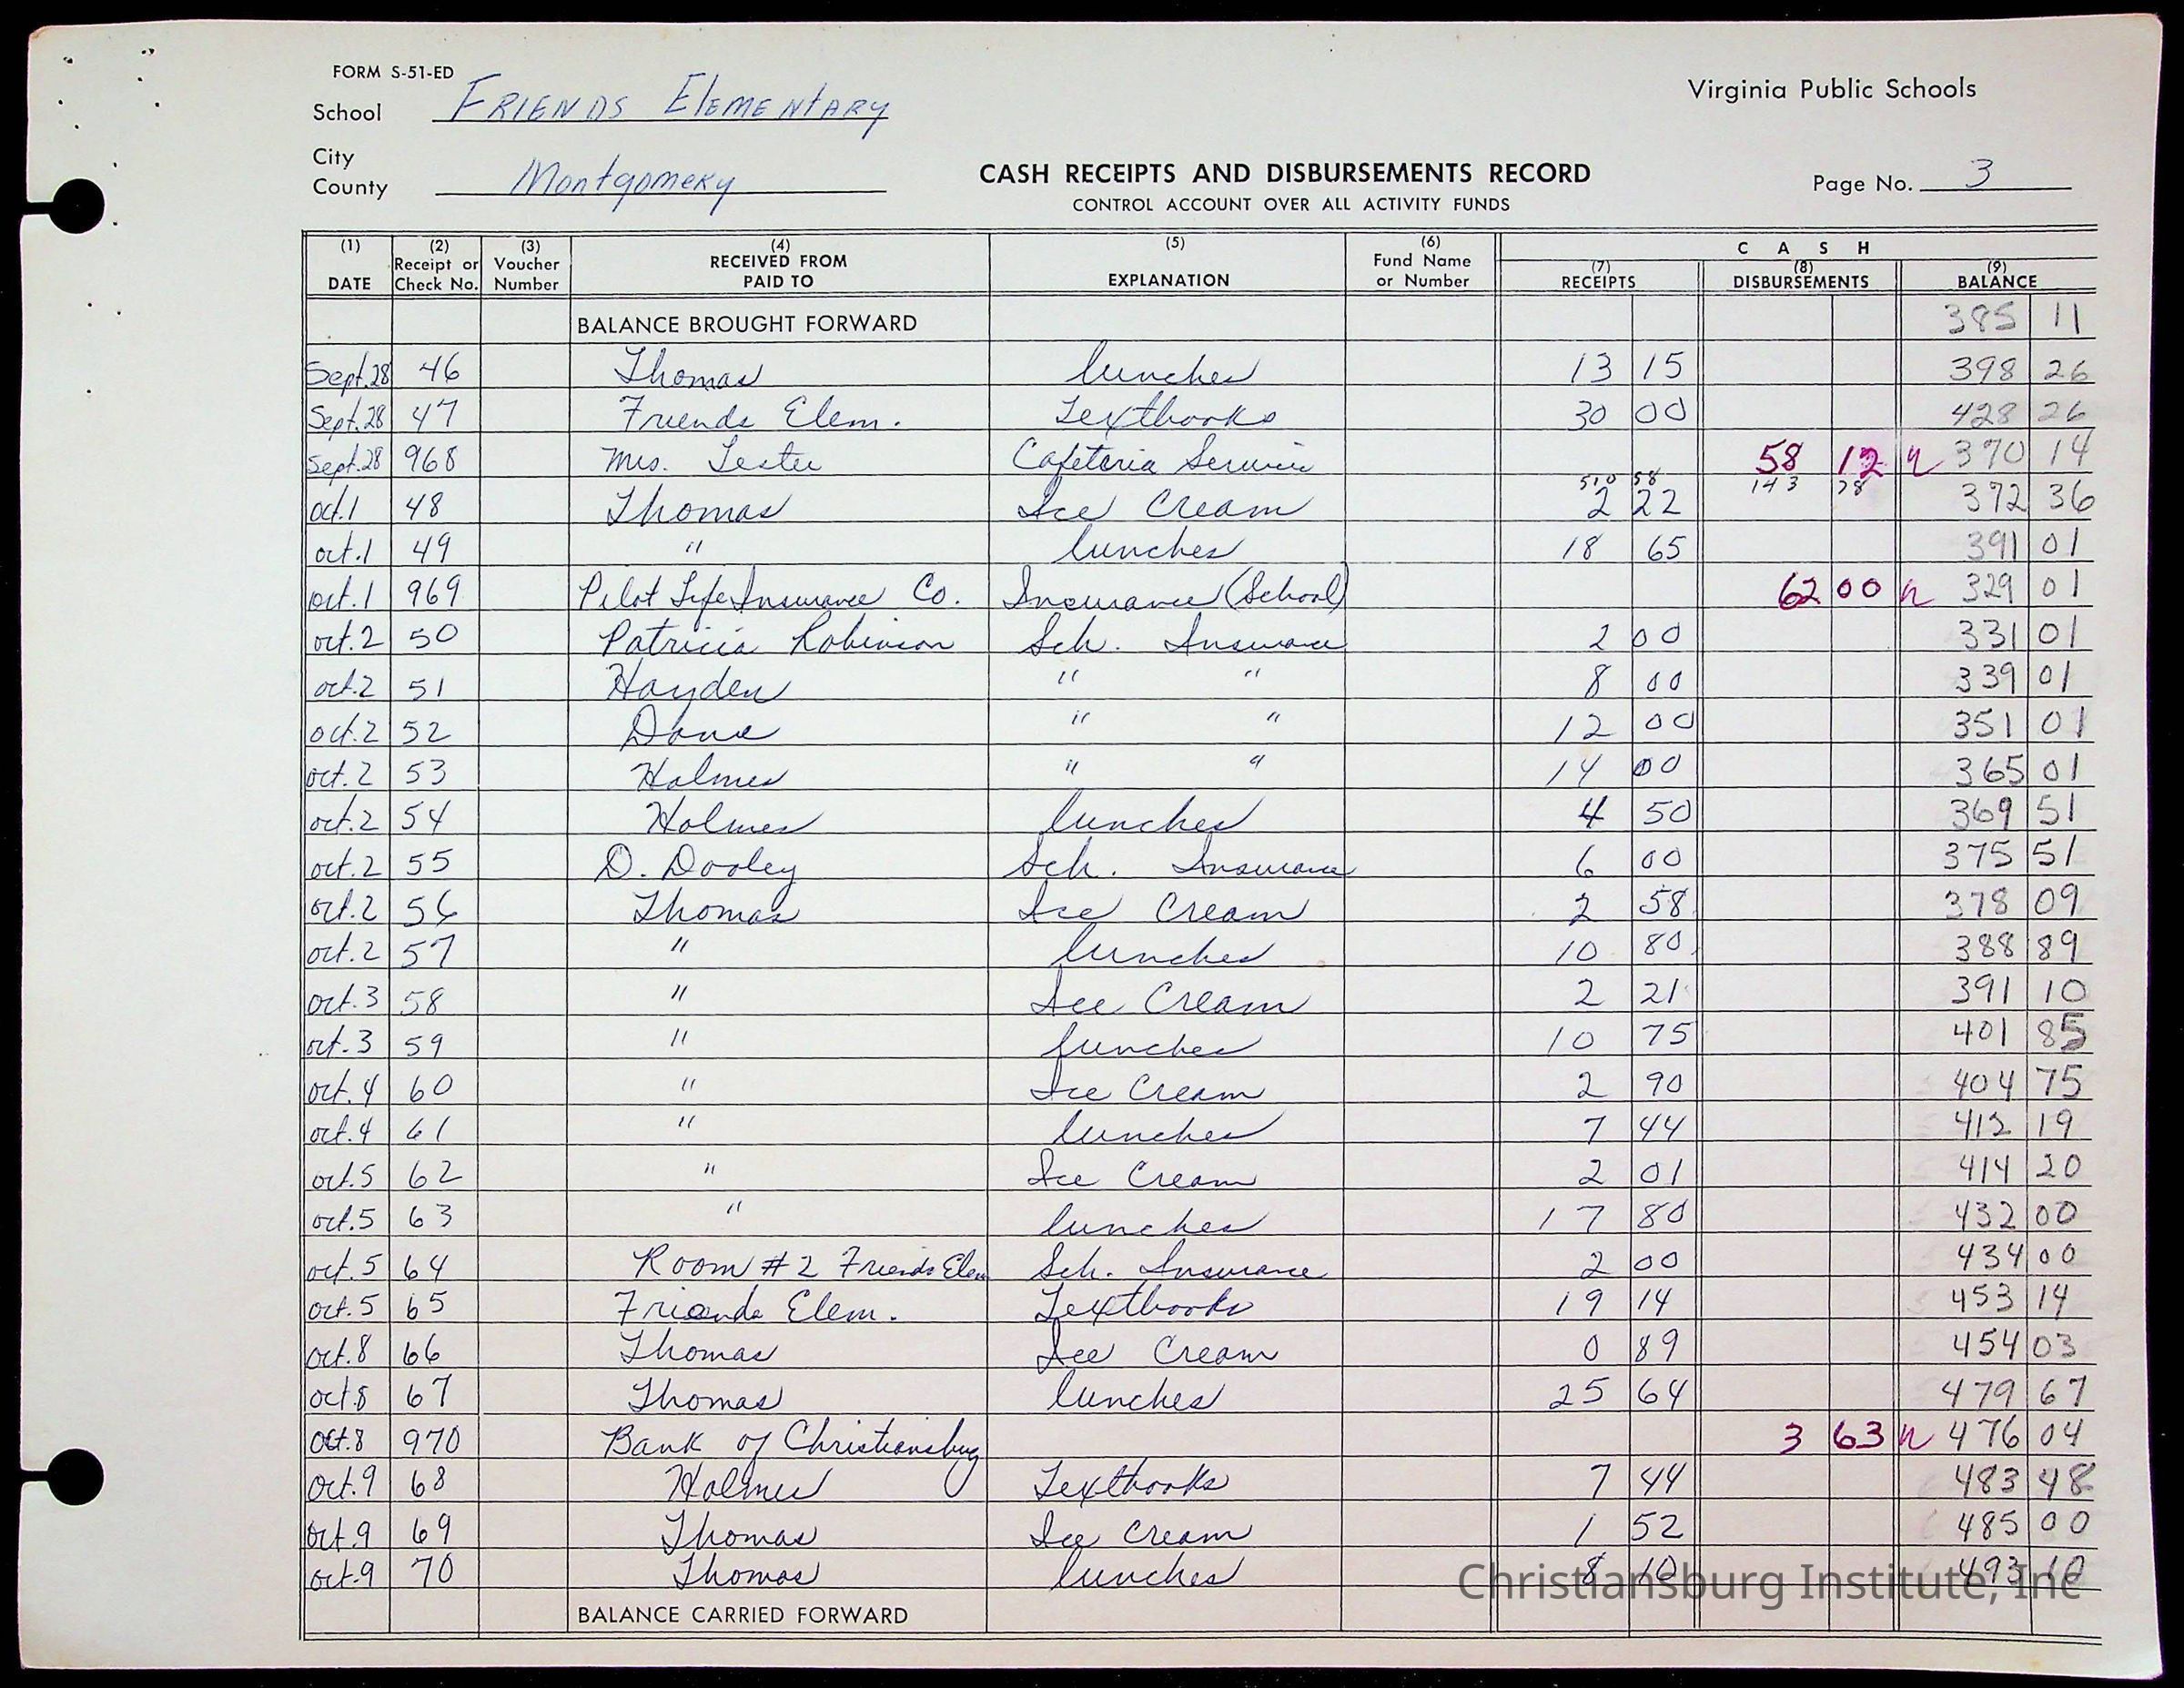 FORM S-51-ED
School FRIENDS ELEMENTARY
Virginia Public Schools
City
County Montgomery
CASH RECEIPTS AND DISBURSEMENTS RECORD
CONTROL ACCOUNT OVER ALL ACTIVITY FUNDS
Page No. 3
(1) DATE (2) Receipt or Check No. (3) Voucher Number (4) RECEIVED FROM PAID TO (5) EXPLANATION (6) Fund Name or Number CASH (7) RECEIPTS (8) DISBURSEMENTS (9) BALANCE
BALANCE BROUGHT FORWARD 385 11
Sept.28 46 Thomas lunches 13 15 398 26
Sept.28 47 Friends Elem. Textbooks 30 00 428 26
Sept.28 968 Mrs. Lester Cafeteria Service 58 12 370 14
510 58 143 78
oct.1 48 Thomas Ice Cream 2 22 372 36
oct.1 49 " lunches 18 65 391 01
oct.1 969 Pilot Life Insurance Co. Insurance (School) 62 00 329 01
oct.2 50 Patricia Robinson Sch. Insurance 2 00 331 01
oct.2 51 Hayden " " 8 00 339 01
oct.2 52 Dove " " 12 00 351 01
oct.2 53 Holmes " " 14 00 365 01
oct.2 54 Holmes lunches 4 50 369 51
oct.2 55 D. Dooley Sch. Insurance 6 00 375 51
oct.2 56 Thomas Ice Cream 2 58 378 09
oct.2 57 " lunches 10 80 388 89
oct.3 58 " Ice Cream 2 21 391 10
oct.3 59 " lunches 10 75 401 85
oct.4 60 " Ice Cream 2 90 404 75
oct.4 61 " lunches 7 44 412 19
oct.5 62 " Ice Cream 2 01 414 20
oct.5 63 " lunches 17 80 432 00
oct.5 64 Room #2 Friends Elem Sch. Insurance 2 00 434 00
oct.5 65 Friends Elem. Textbooks 19 14 453 14
oct.8 66 Thomas Ice Cream 0 89 454 03
oct8 67 Thomas lunches 25 64 479 67
oct.8 970 Bank of Christiansburg 3 63 476 04
Oct.9 68 Holmes Textbooks 7 44 483 48
Oct.9 69 Thomas Ice Cream 1 52 485 00
oct.9 70 Thomas lunches 8 10 493 10
BALANCE CARRIED FORWARD
Christiansburg Institute, Inc